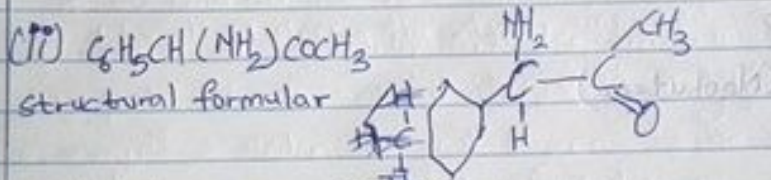 (iii) C₆H₅CH(NH₂)COCH₃
structural formular
NH₂
CH₃
C — C
O
H